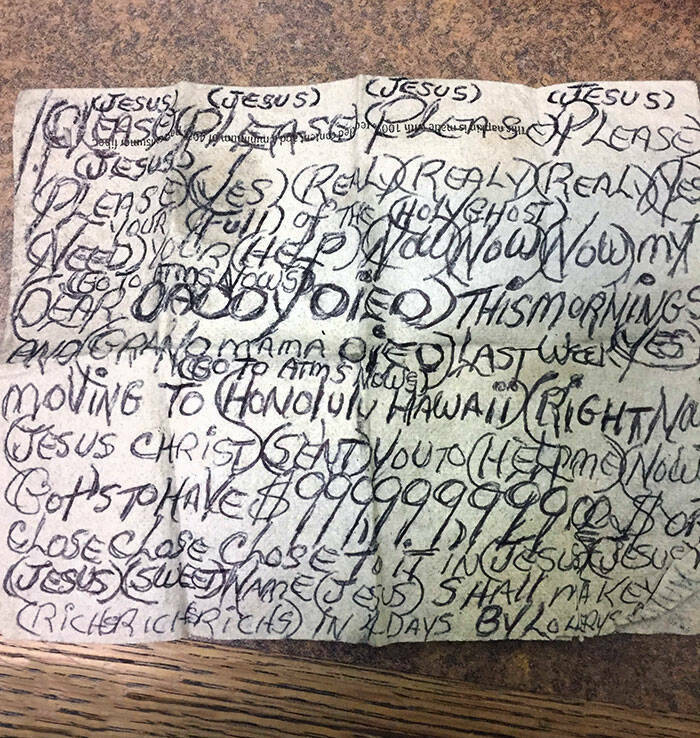 (JESUS) (JESUS) (JESUS) (JESUS)
PLEASE PLEASE PLEASE) PLEASE
(JESUS)
PLEASE) (YES) (REALY) (REALY) (REALY) (YES
YOUR (FUll) OF THE (HOLY GHOST)
(NEED) YOUR (HELP) (NOW) (NOW) (NOW) MY
(GO TO ATMS NOWS)
(DEAR DADDY DIED) THIS MORNINGS
AND (GRANDMAMA DIED) LAST WEEK (YES
(GO TO ATMS NOWS)
MOVING TO (HONOlUlU HAWAii) (RIGHT NOW
(JESUS CHRIST) (SENT YOU TO (HELP ME) NOW
GOTH'S TO HAVE $
CLOSE CLOSE CLOSE TO IT IN (JESUS) (JESUS
(JESUS) (SWEET) NAME (JESUS) SHAll MAKE Y
(RICHERICHERICHS) IN DAYS BY